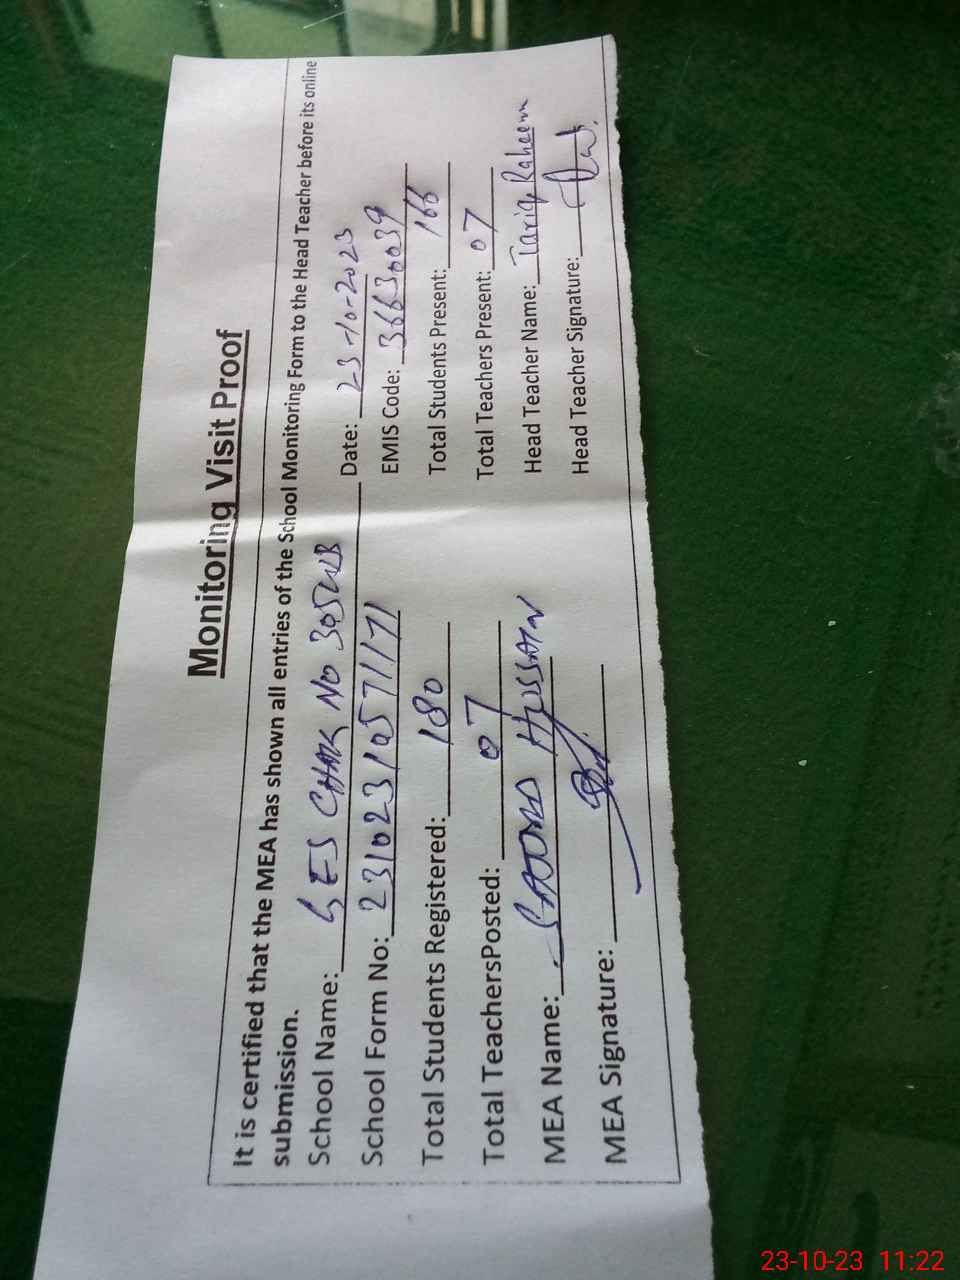 Monitoring Visit Proof
It is certified that the MEA has shown all entries of the School Monitoring Form to the Head Teacher before its online
submission.
School Name: GES CHAK NO 305WB Date: 23-10-2023
School Form No: 231023105711171 EMIS Code: 36630039
Total Students Registered: 180 Total Students Present: 166
Total TeachersPosted: 07 Total Teachers Present: 07
MEA Name: HUSSAIN Head Teacher Name: Tariq Raheem
MEA Signature: Head Teacher Signature:
23-10-23 11:22